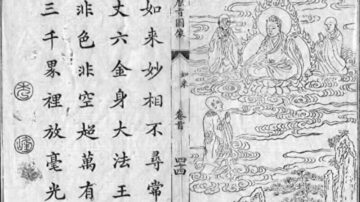 圖像
如來
卷首
如來妙相不尋常
丈六金身大法王
非色非空超萬有
三千界裡放毫光